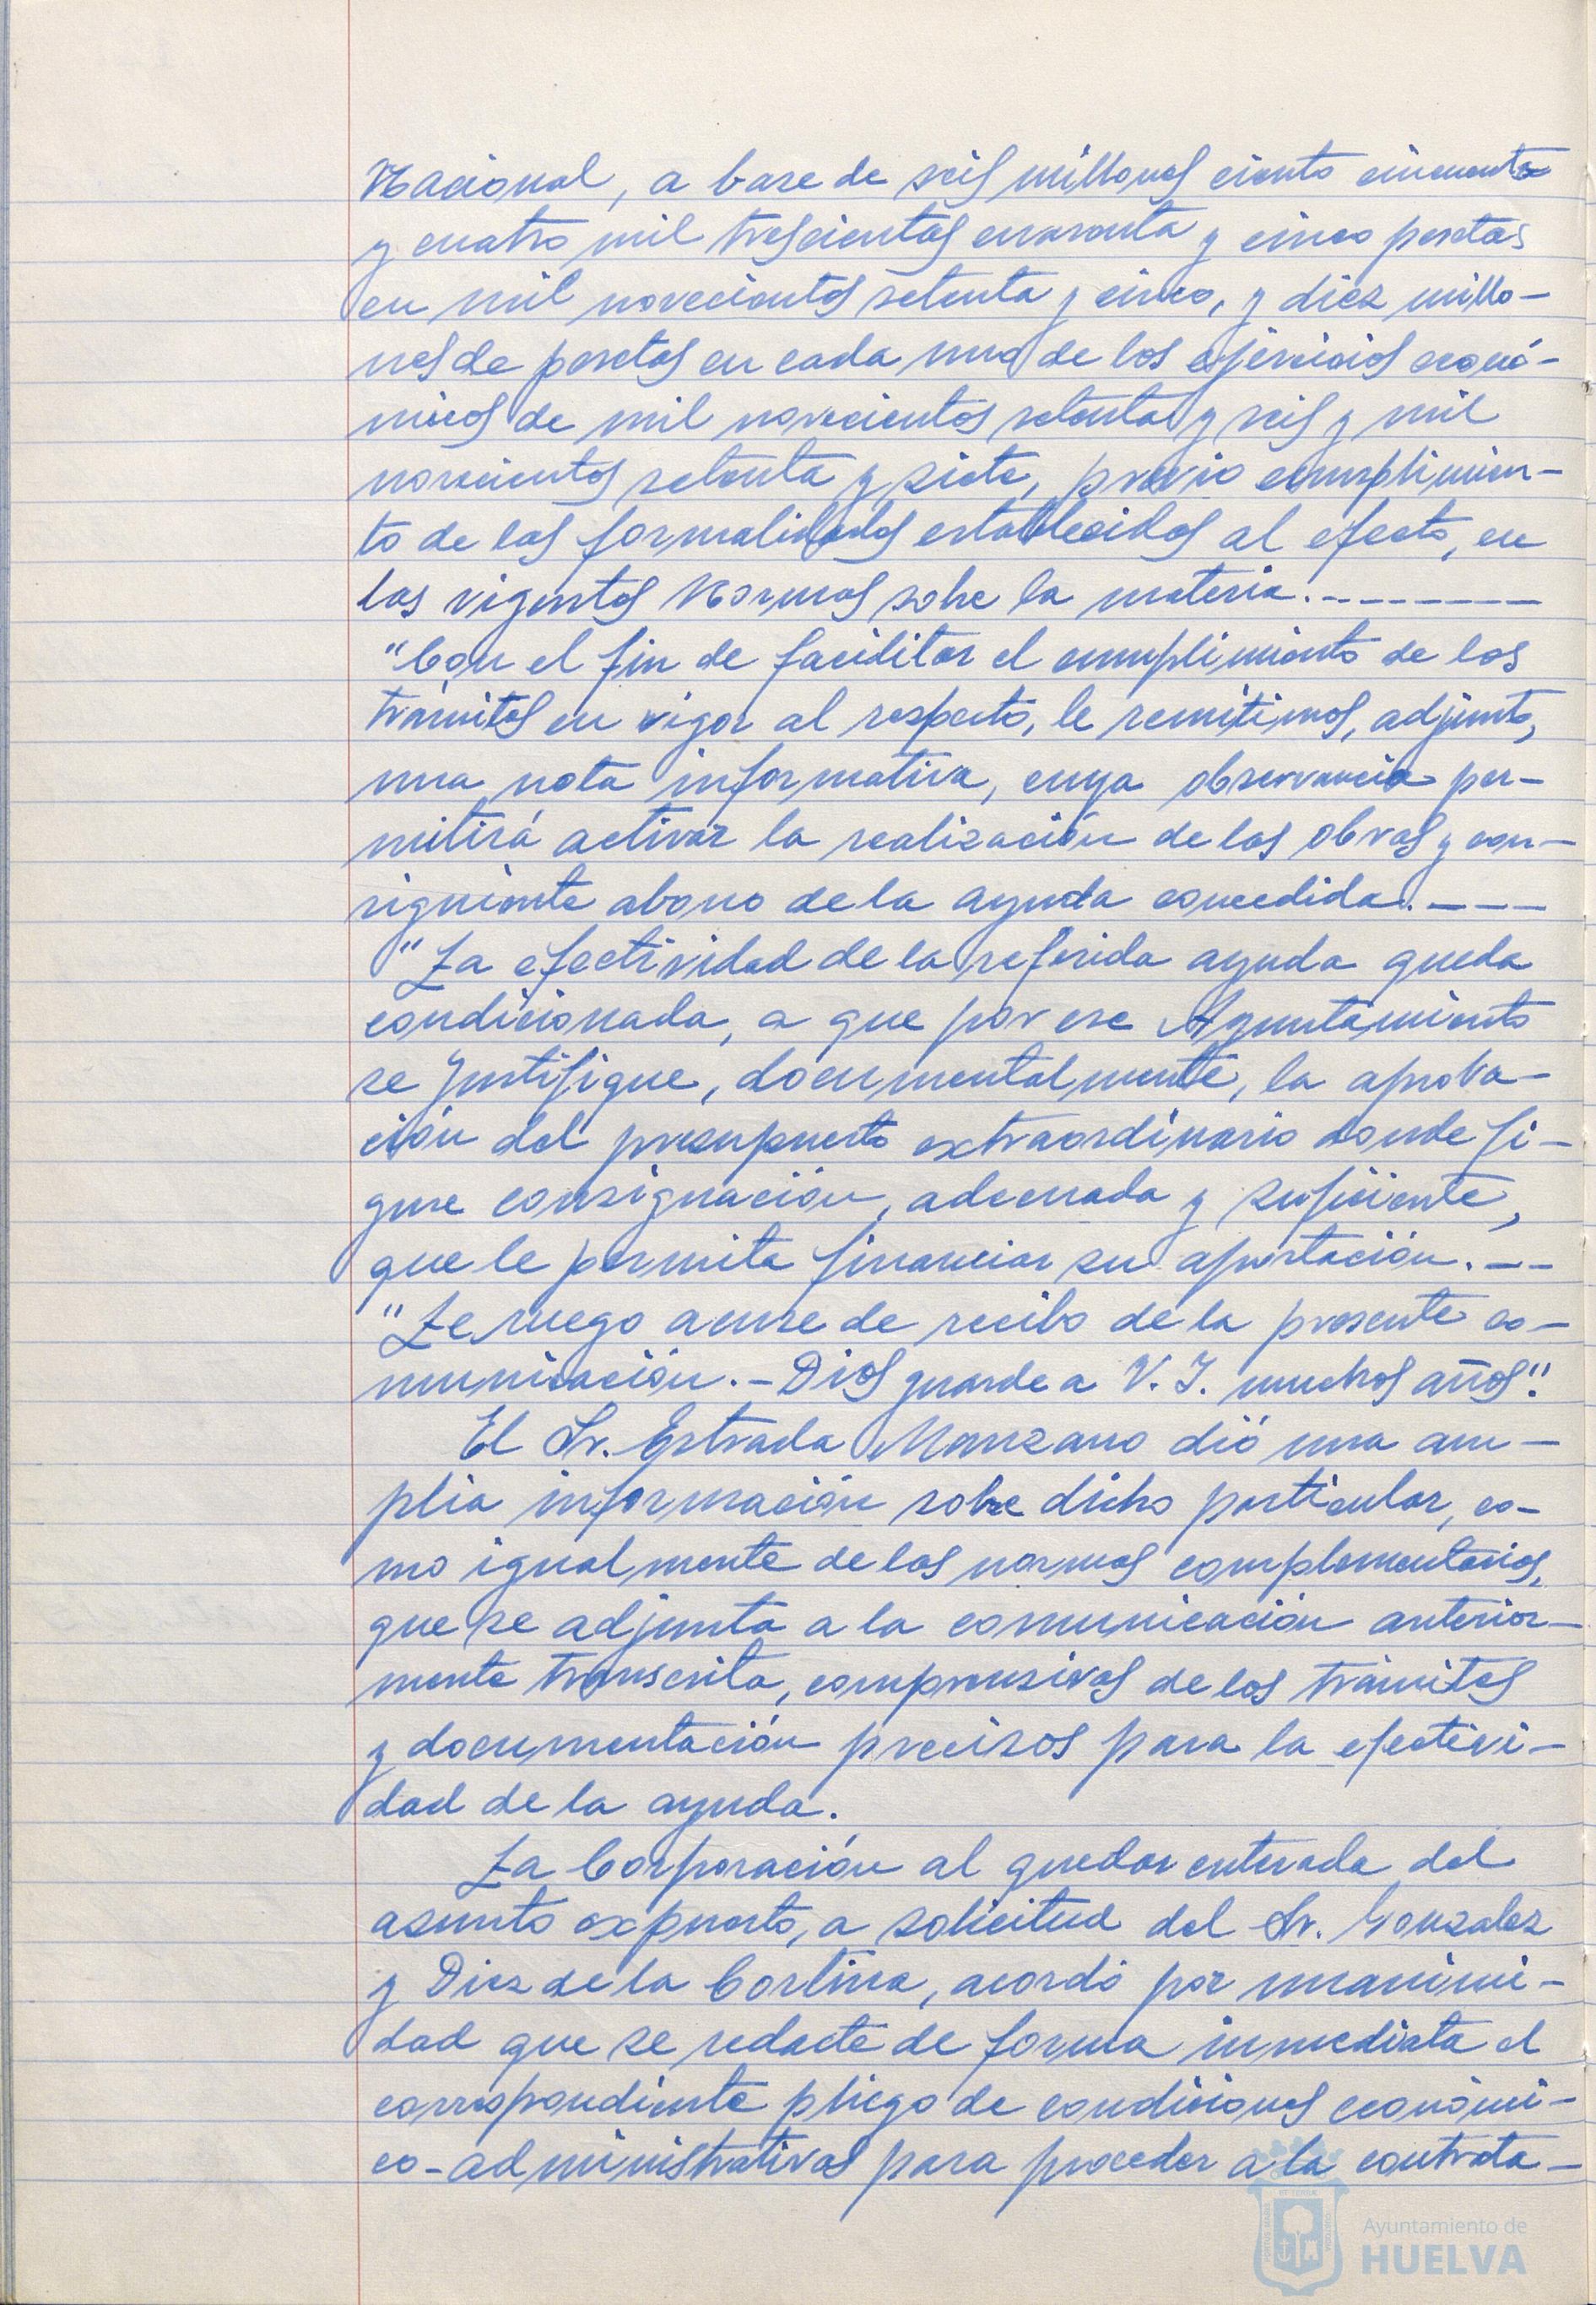 Nacional, a base de seis millones ciento cincuenta
y cuatro mil trescientas cuarenta y cinco pesetas
en mil novecientos setenta y cinco, y diez millo-
nes de pesetas en cada uno de los ejercicios econó-
micos de mil novecientos setenta y seis y mil
novecientos setenta y siete, previo cumplimien-
to de las formalidades establecidas al efecto, en
las vigentes Normas sobre la materia.---------
"Con el fin de facilitar el cumplimiento de los
trámites en vigor al respecto, le remitimos, adjunto,
una nota informativa, cuya observancia per-
mitirá activar la realización de las obras y con-
siguiente abono de la ayuda concedida.----
"La efectividad de la referida ayuda queda
condicionada, a que por ese Ayuntamiento
se justifique, documentalmente, la aproba-
ción del presupuesto extraordinario donde fi-
gure consignación, adecuada y suficiente,
que le permita financiar su aportación.--
"Le ruego acuse de recibo de la presente co-
municación.-Dios guarde a V. I. muchos años".
El Sr. Estrada Manzano dió una am-
plia información sobre dicho particular, co-
mo igualmente de las normas complementarias,
que se adjunta a la comunicación anterior-
mente transcrita, comprensivas de los trámites
y documentación precisos para la efectivi-
dad de la ayuda.
La Corporación al quedar enterada del
asunto expuesto, a solicitud del Sr. Gonzalez
y Diez de la Cortina, acordó por unanimi-
dad que se redacte de forma inmediata el
correspondiente pliego de condiciones económi-
co-administrativas para proceder a la contrata-
Ayuntamiento de
HUELVA